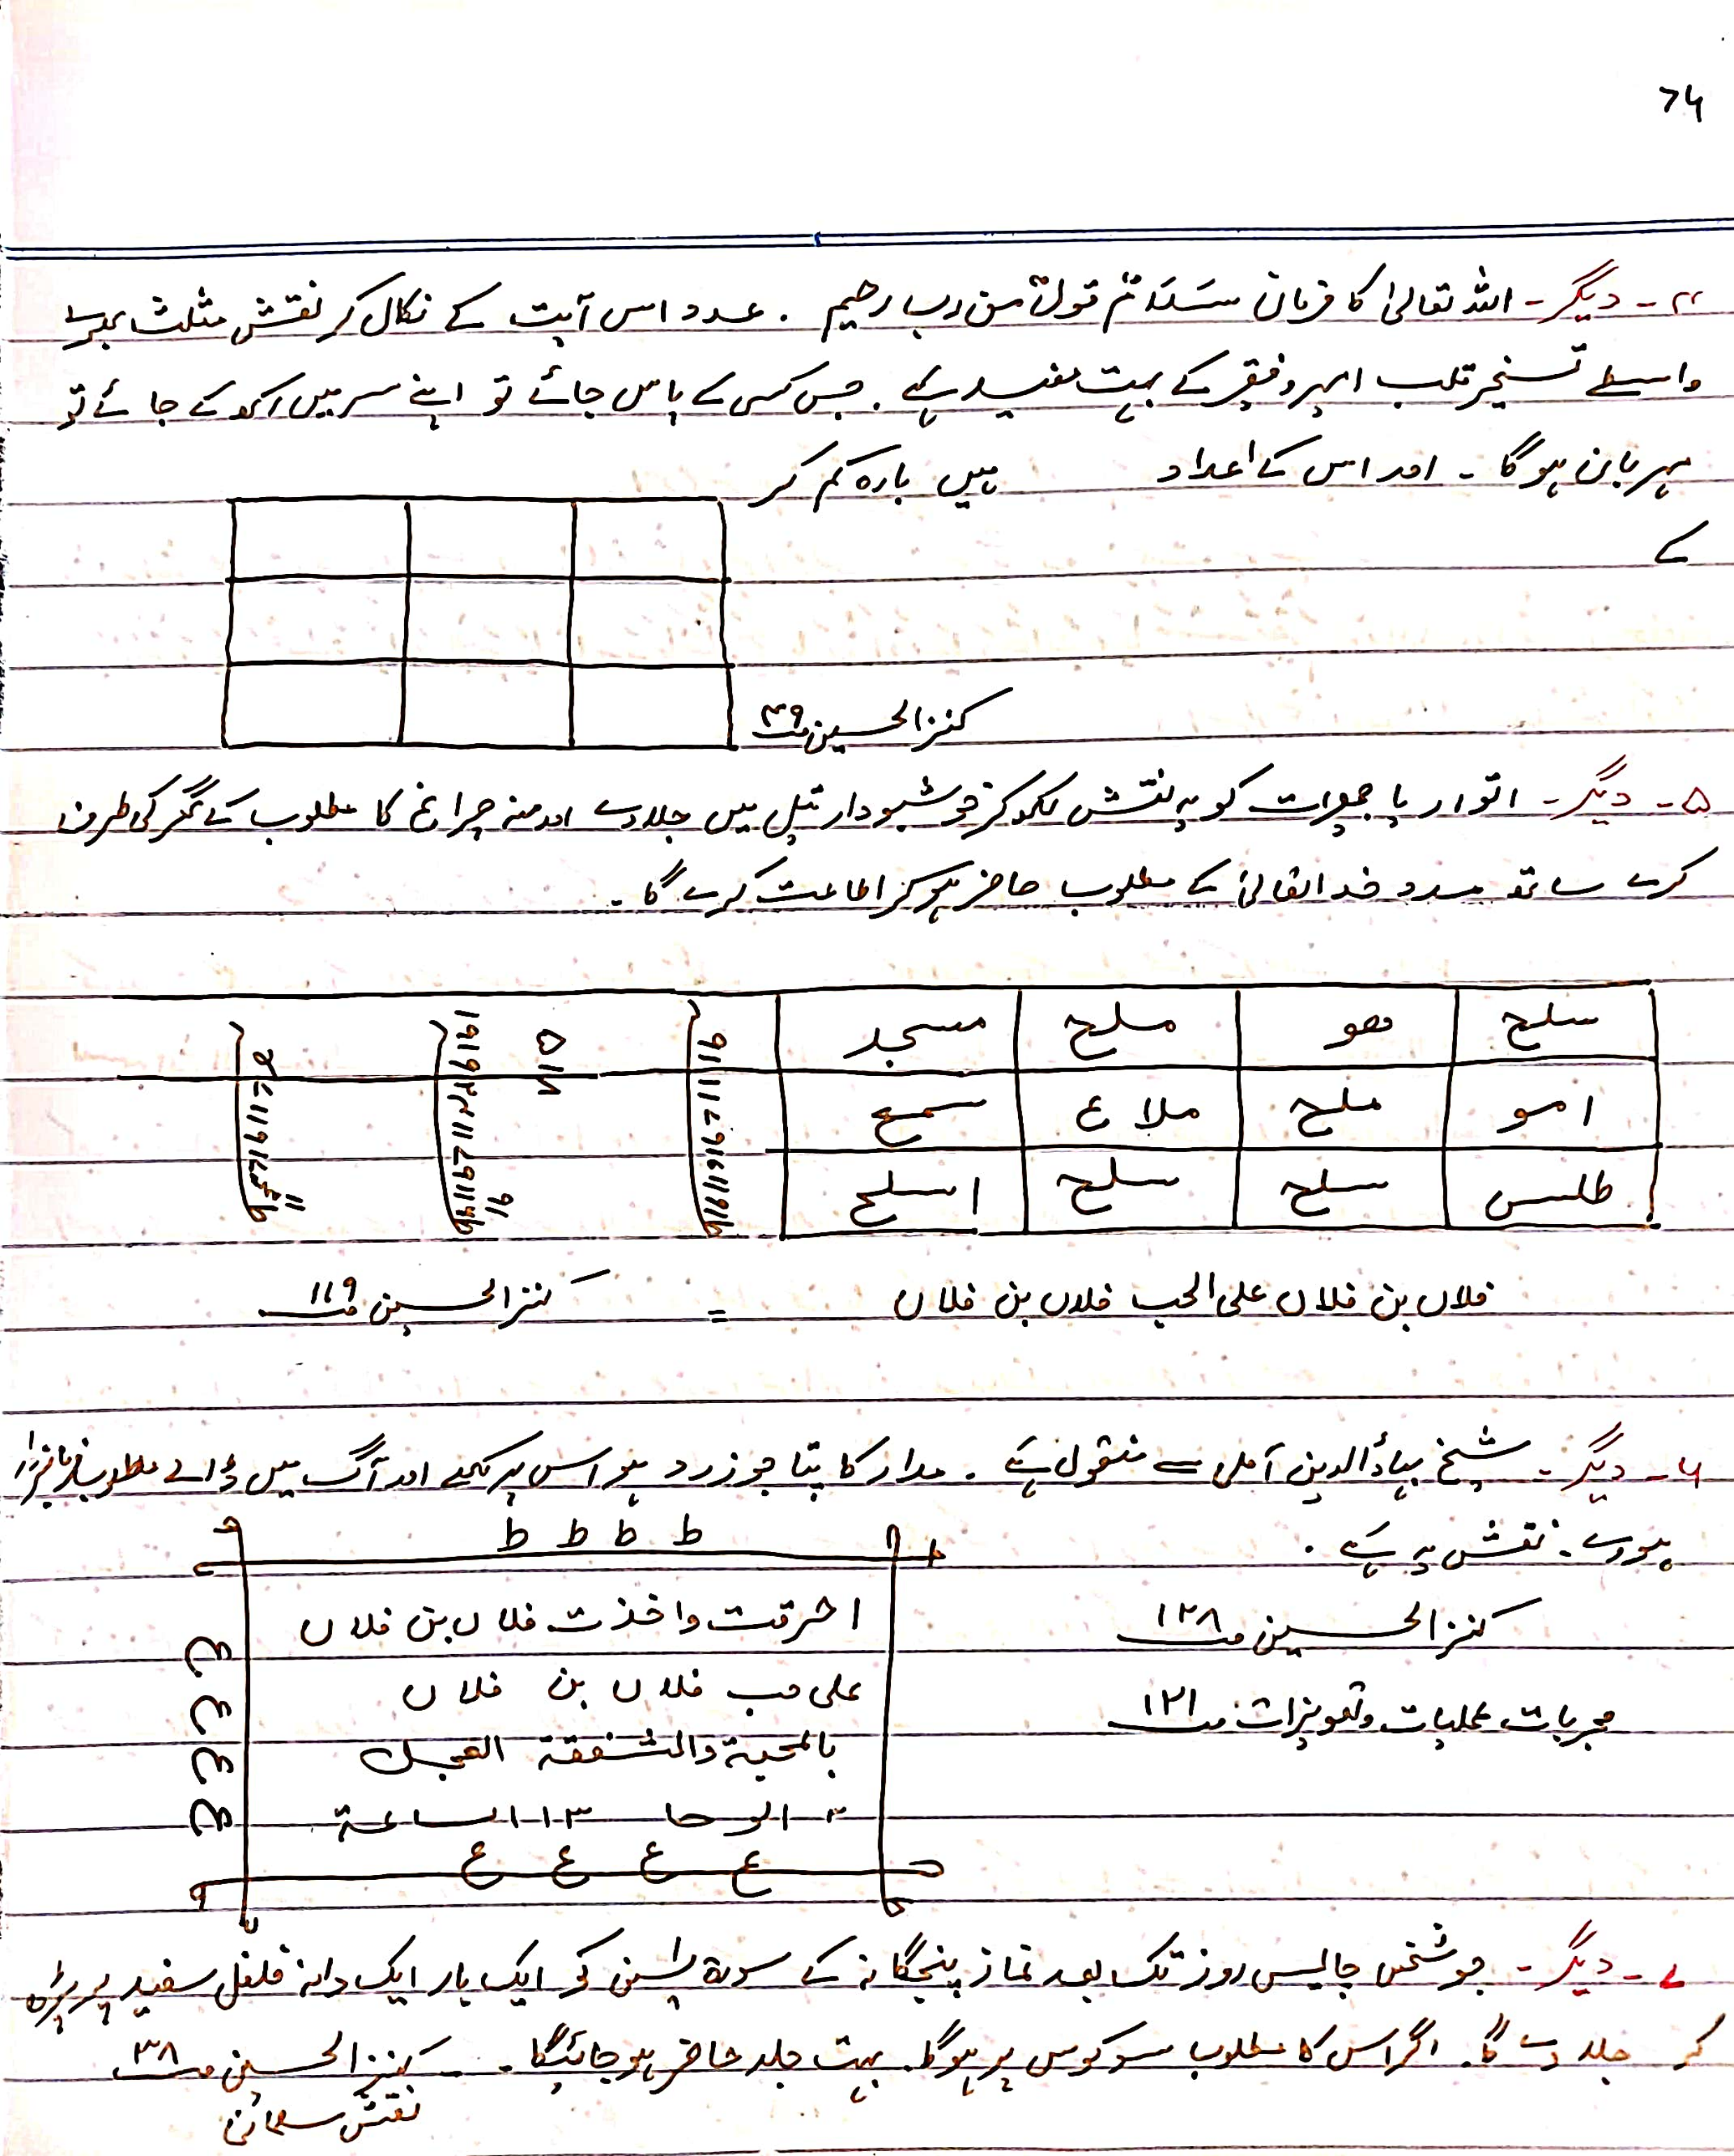 ۷۶
۴۔ دیگر۔ اللہ تعالیٰ کا فرمان سَلَامٌ قولاً من رب رحیم . عدد اس آیت کے نکال کر نقش مثلث بھرے
واسطے تسخیر قلب امیر و فقیر کے بہت مفید ہے . جس کسی کے پاس جائے تو اپنے سر میں رکھ کے جائے تو
مہربان ہوگا ۔ اور اس کے اعداد میں بارہ کم کر
کے
کنز الحسین صـ ۳۹
۵۔ دیگر۔ اتوار یا جمعرات کو یہ نقش لکھ کر خوشبودار تیل میں جلاوے اور منہ چراغ کا مطلوب کے گھر کی طرف
کرے ساتھ مدد خدا تعالیٰ کے مطلوب حاضر ہو کر اطاعت کرے گا ۔
سلح ھو ملح مسجد
امو ملح ملاع سمع
طلس سلح سلح اسلح
فلاں بن فلاں علی الحب فلاں بن فلاں = کنز الحسین صـ ۱۱۹
۶۔ دیگر۔ شیخ بہاؤالدین آملی سے منقول ہے . مدار کا پتا جو زرد ہو اس پر لکھے اور آگ میں ڈالے مطلوب
ہووے . نقش یہ ہے .
ط ط ط ط
احرقت واخذت فلاں بن فلاں
علی حب فلاں بن فلاں
بالمحبۃ والشفقۃ العجل
۲ الوحا ۱۳ الساعۃ
ع ع ع ع
ع ع ع ع
کنز الحسین صـ ۱۲۸
مجربات عملیات و تعویزات صـ ۱۲۱
۷۔ دیگر۔ جو شخص چالیس روز تک بعد نماز پنجگانہ کے سورۃ یٰسین کو ایک بار ایک دانہ فلفل سفید پر پڑھ
کر جلا دے گا . اگر اس کا مطلوب سو کوس پر ہوگا . بہت جلد حاضر ہو جائیگا . کنز الحسین صـ ۳۸
نقش سلیمانی